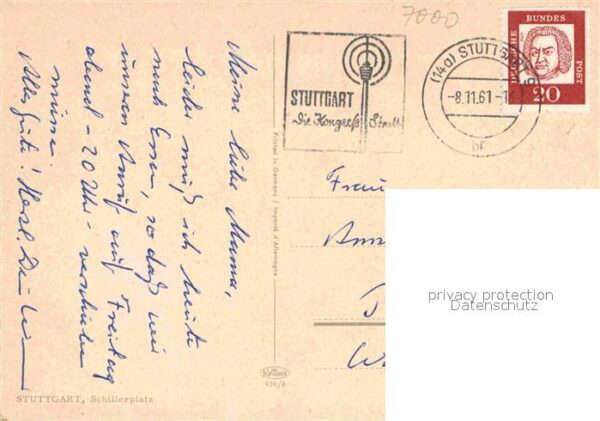 7000
STUTTGART
Die Kongreß-Stadt
(14a) STUTTGART 9
-8.11.61-1
bf
DEUTSCHE BUNDES POST
20
Meine liebe Mama,
leider muß ich heute
noch Essen, so daß wir
unseren Anruf auf Freitag
abend - 20 Uhr - verschieben
müssen.
Alles Gute! Herzl. Dein
Printed in Germany / Importé d'Allemagne
Frau
privacy protection
Datenschutz
939/8
STUTTGART, Schillerplatz